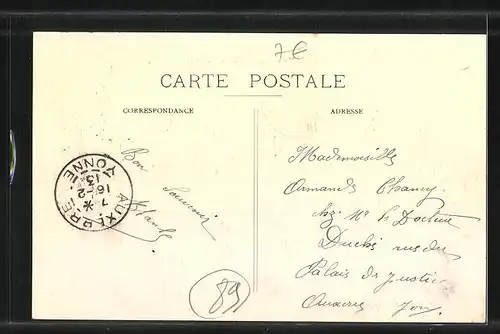 7€
CARTE POSTALE
CORRESPONDANCE
ADRESSE
Bon
Souvenir
Mademoiselle
Armande Chancy
chez Mr le Docteur
Duché rue du
Palais de Justice
Auxerre Yon.
AUXERRE
YONNE
7 *
16-2
13
89